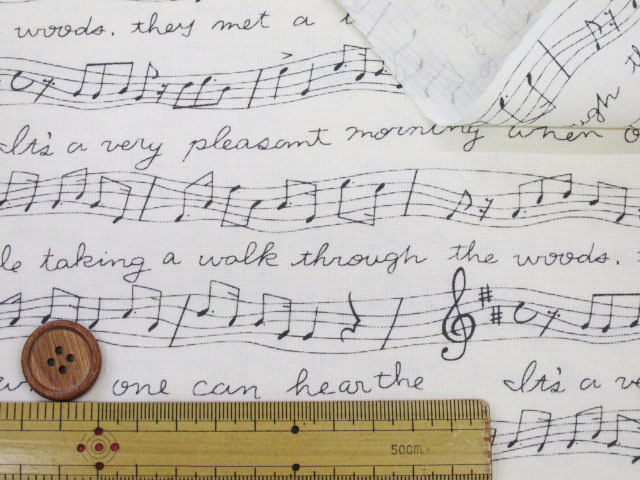 woods. they met a
It's a very pleasant morning when
taking a walk through the woods.
one can hearthe
It's a
50cm